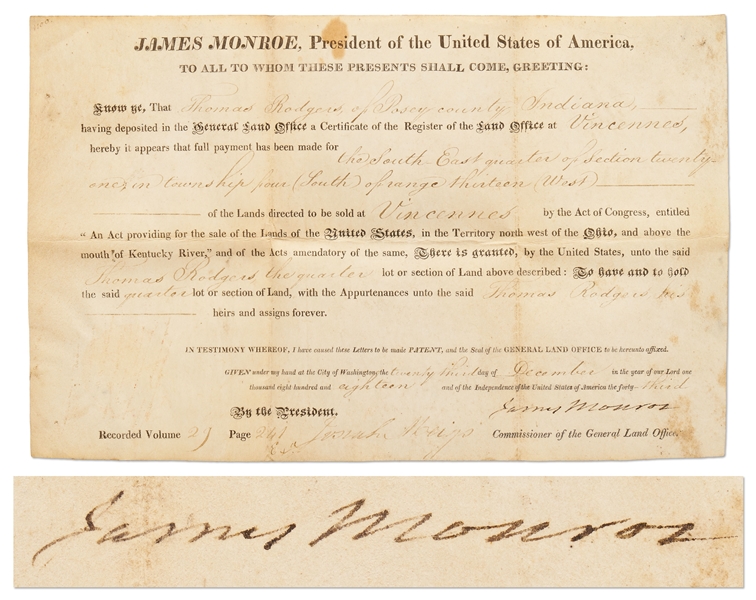 JAMES MONROE, President of the United States of America,
TO ALL TO WHOM THESE PRESENTS SHALL COME, GREETING:
Know ye, That Thomas Rodgers, of Posey county Indiana,
having deposited in the General Land Office a Certificate of the Register of the Land Office at Vincennes,
hereby it appears that full payment has been made for the South East quarter of section twenty
one, in township four (South) of range thirteen (West)
of the Lands directed to be sold at Vincennes by the Act of Congress, entitled
"An Act providing for the sale of the Lands of the United States, in the Territory north west of the Ohio, and above the
mouth of Kentucky River," and of the Acts amendatory of the same, There is granted, by the United States, unto the said
Thomas Rodgers the quarter lot or section of Land above described: To have and to hold
the said quarter lot or section of Land, with the Appurtenances unto the said Thomas Rodgers his
heirs and assigns forever.
IN TESTIMONY WHEREOF, I have caused these Letters to be made PATENT, and the Seal of the GENERAL LAND OFFICE to be hereunto affixed.
GIVEN under my hand at the City of Washington, the twenty third day of December in the year of our Lord one
thousand eight hundred and eighteen and of the Independence of the United States of America the forty-third
By the President. James Monroe
Recorded Volume Page Josiah Meigs Commissioner of the General Land Office.
James Monroe